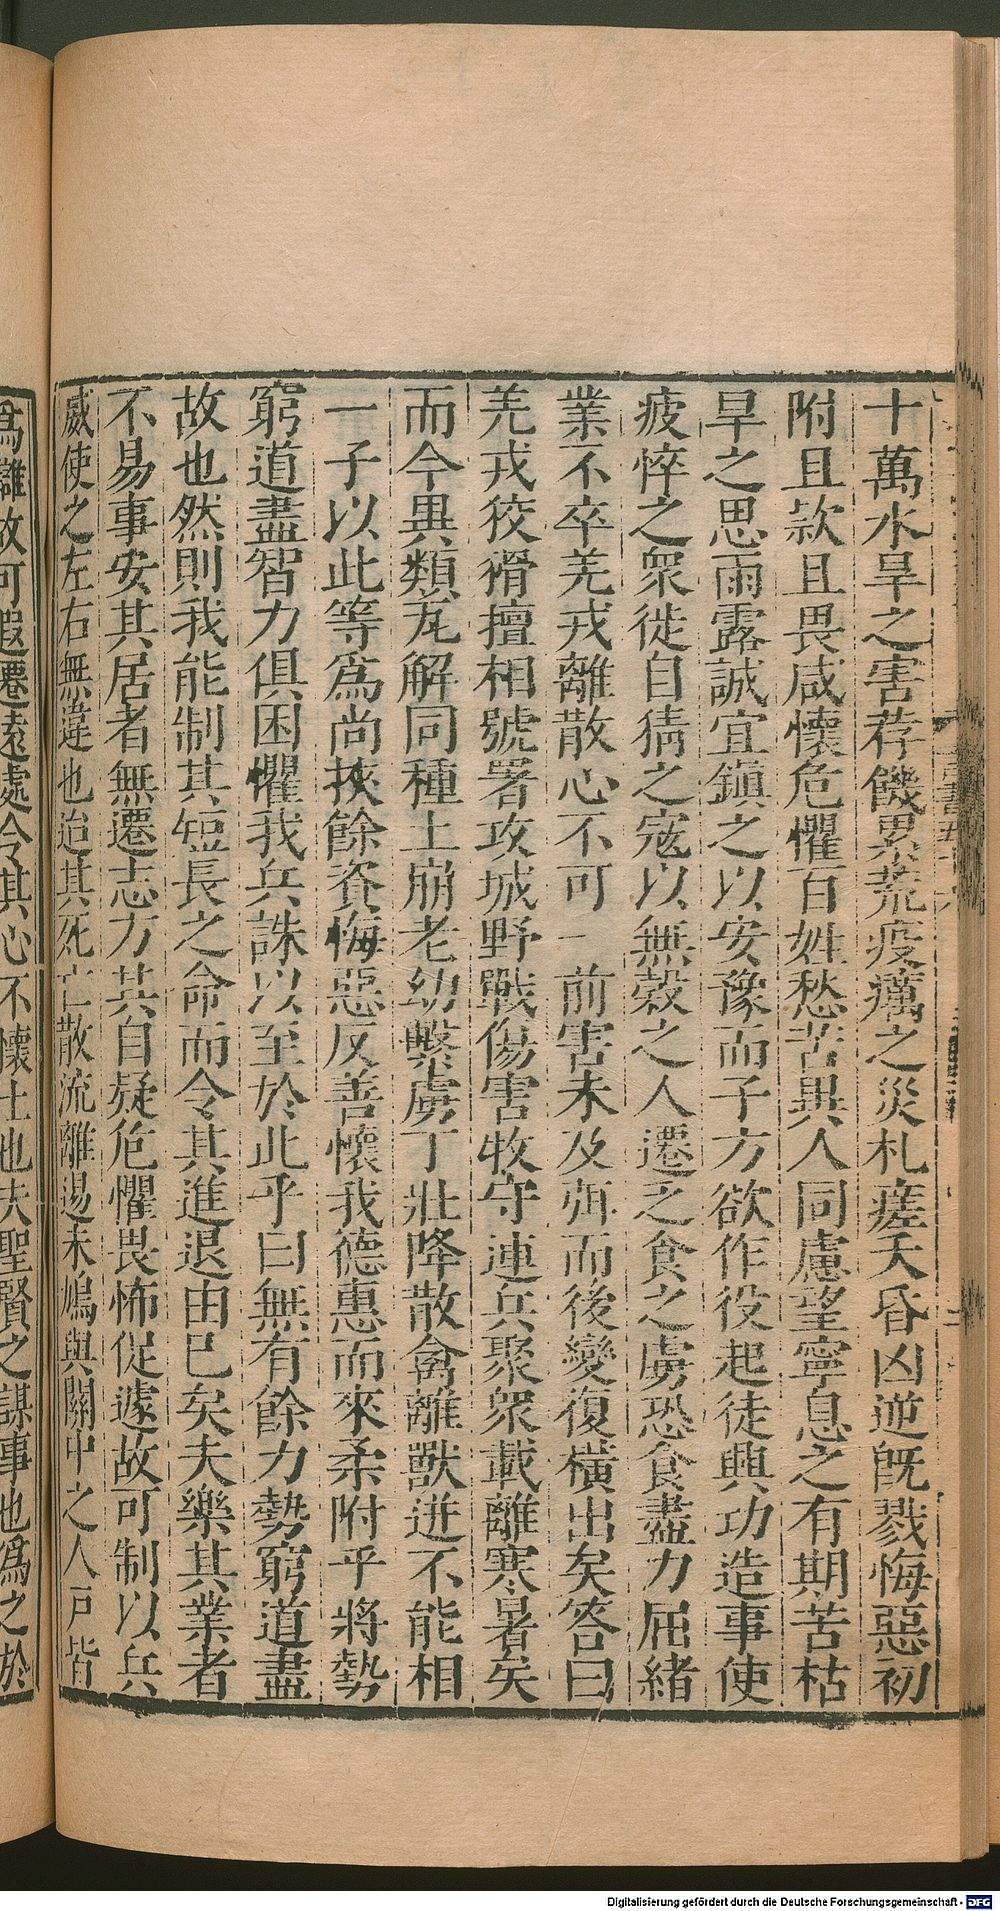 十萬水旱之害荐饑累荒疫癘之災札瘥夭昏凶逆旣戮悔惡初
附且款且畏咸懷危懼百姓愁苦異人同慮望寧息之有期苦枯
旱之思雨露誠宜鎮之以安豫而子方欲作役起徒興功造事使
疲悴之衆徙自猜之寇以無榖之人遷乏食之虜恐食盡力屈緒
業不卒羌戎離散心不可一前害未及弭而後變復橫出矣答曰
羌戎狡猾擅相號署攻城野戰傷害牧守連兵聚衆載離寒暑矣
而今異類瓦解同種土崩老幼繫虜丁壯降散禽離獸迸不能相
一子以此等爲尚挾餘資悔惡反善懷我德惠而來柔附乎將勢
窮道盡智力俱困懼我兵誅以至於此乎曰無有餘力勢窮道盡
故也然則我能制其短長之命而令其進退由已矣夫樂其業者
不易事安其居者無遷志方其自疑危懼畏怖促遽故可制以兵
威使之左右無違也迨其死亡散流離逷未鳩與關中之人戸皆
爲讎故可遐遷遠處令其心不懷土也夫聖賢之謀事也爲之於
Digitalisierung gefördert durch die Deutsche Forschungsgemeinschaft - DFG